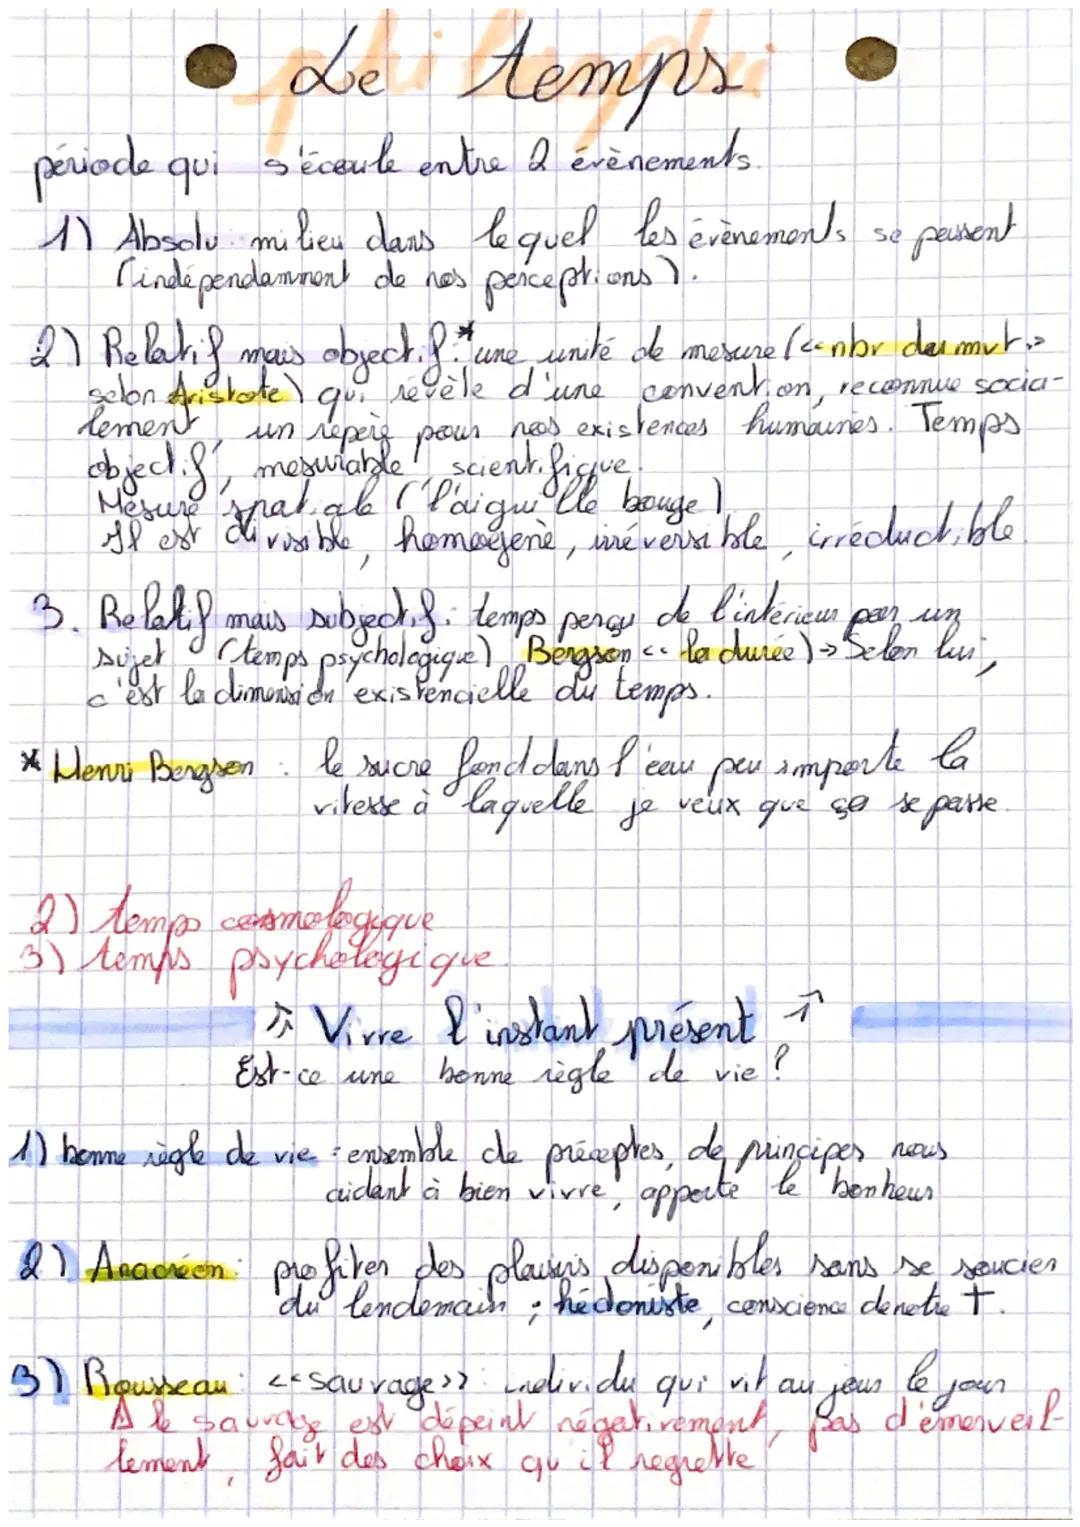 Le temps
période qui s'écoule entre 2 évènements.
1) Absolu milieu dans lequel les évènements se passent
(indépendamment de nos perceptions).
2) Relatif mais objectif :* une unité de mesure (<< nbr du mvt >>
selon Aristote) qui révèle d'une convention, reconnue socia-
lement, un repère pour nos existences humaines. Temps
objectif, mesurable, scientifique.
Mesure spatiale (l'aiguille bouge)
Il est divisible, homogène, irréversible, irréductible.
3. Relatif mais subjectif : temps perçu de l'intérieur par un
sujet (temps psychologique) Bergson << la durée) → Selon lui,
c'est la dimension existencielle du temps.
* Henri Bergson : le sucre fond dans l'eau peu importe la
vitesse à laquelle je veux que ça se passe.
2) temps cosmologique
3) temps psychologique.
Vivre l'instant présent
Est-ce une bonne règle de vie ?
1) bonne règle de vie : ensemble de préceptes, de principes nous
aidant à bien vivre, apporte le bonheur
2) Anacréon : profiter des plaisirs disponibles sans se soucier
du lendemain ; hédoniste, conscience de notre †.
3) Rousseau : << sauvage >> : individu qui vit au jour le jour
le sauvage est dépeint négativement, pas d'émerveil-
lement, fait des choix qu'il regrette